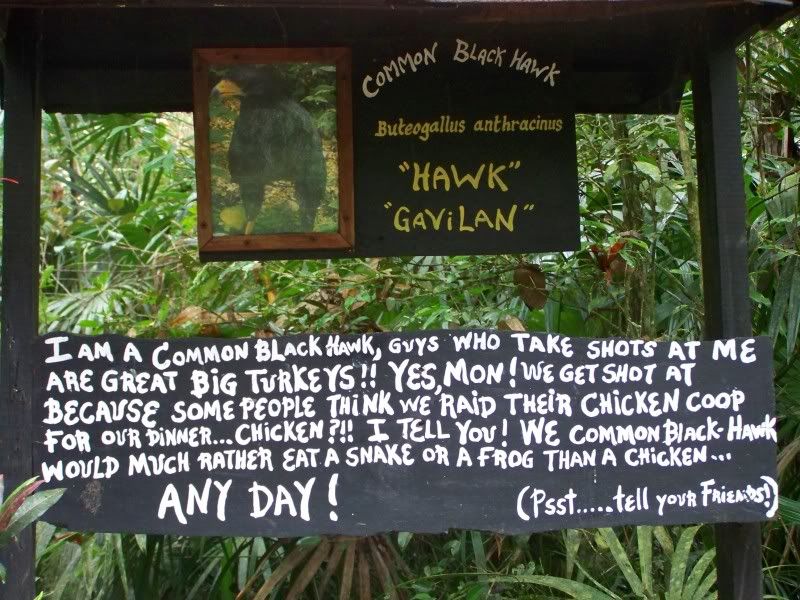 COMMON BLACK HAWK
Buteogallus anthracinus
"HAWK"
"GAViLAN"
I AM A COMMON BLACK HAWK, GUYS WHO TAKE SHOTS AT ME
ARE GREAT BIG TURKEYS!! YES, MON! WE GET SHOT AT
BECAUSE SOME PEOPLE THINK WE RAID THEIR CHICKEN COOP
FOR OUR DINNER... CHICKEN?!! I TELL YOU! WE COMMON BLACK-HAWK
WOULD MUCH RATHER EAT A SNAKE OR A FROG THAN A CHICKEN...
ANY DAY! (Psst.....tell your Friends!)